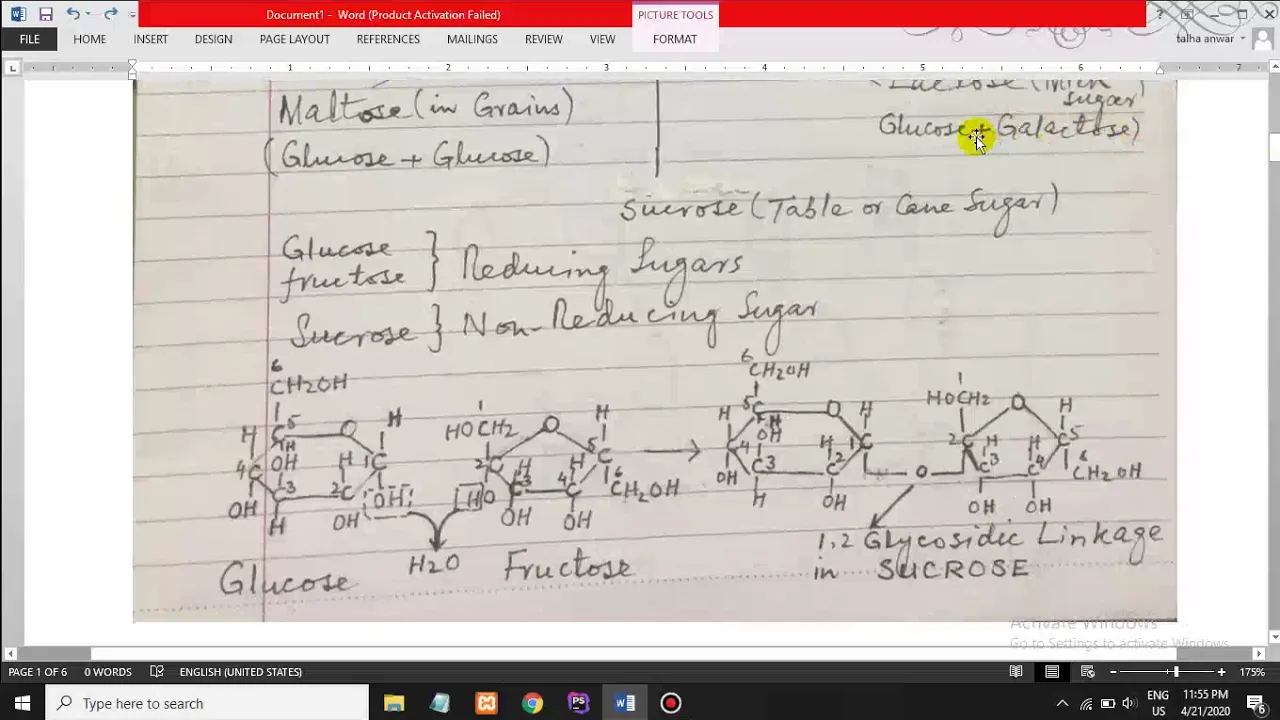 Document1 - Word (Product Activation Failed)
PICTURE TOOLS
?
FILE HOME INSERT DESIGN PAGE LAYOUT REFERENCES MAILINGS REVIEW VIEW FORMAT
talha anwar
L
1 2 3 4 5 6 7
Maltose (in Grains)
(Glucose + Glucose)
Lactose (Milk
sugar)
Glucose + Galactose)
Sucrose (Table or Cane Sugar)
Glucose
fructose } Reducing Sugars
Sucrose } Non-Reducing Sugar
6
CH2OH
H 5 C O H
H
4 C OH H 1 C
C 3 2 C OH
OH H OH
H2O
Glucose
1
HOCH2 O H
2 C H H 5 C
C 3 4 C 6 CH2OH
HO OH OH
Fructose
6
CH2OH
H 5 C O H
H
C 4 OH H 1 C
C 3 C 2
OH H OH
O
1
HOCH2 O H
2 C H H C 5
C 3 C 4 6 CH2OH
OH OH
1,2 Glycosidic Linkage
in SUCROSE
Activate Windows
Go to Settings to activate Windows.
PAGE 1 OF 6 0 WORDS ENGLISH (UNITED STATES) 175%
Type here to search
PS
ENG
US
11:55 PM
4/21/2020
6